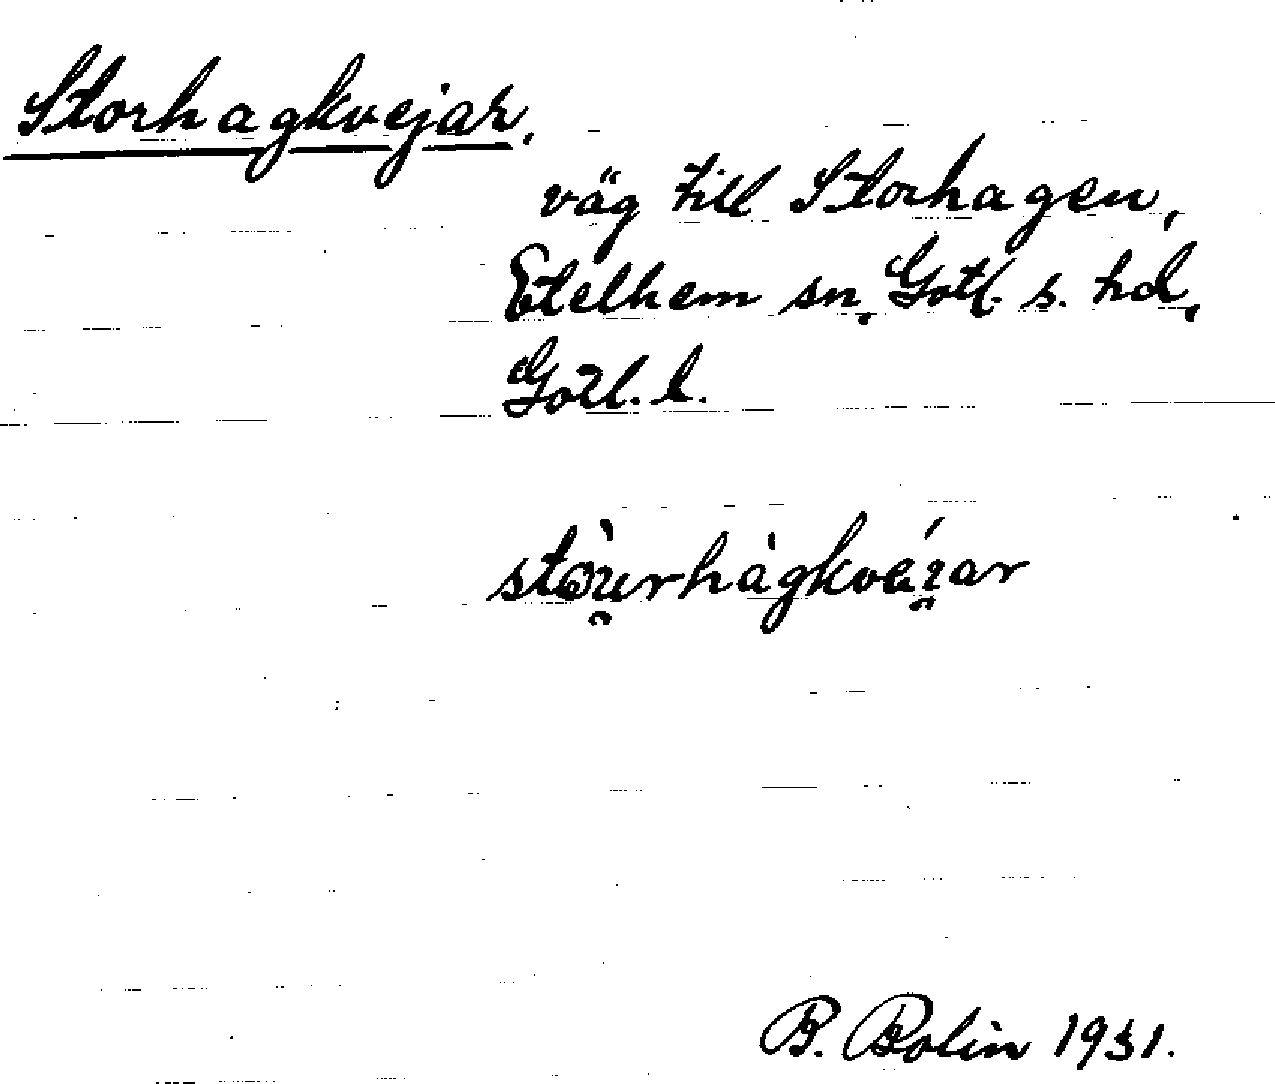 Storhagkvejar.
väg till Storhagen,
Etelhem sn, Gotl. s. hd,
Gotl. l.
stòu̯rhàgkvéi̯ar
B. Bolin 1931.